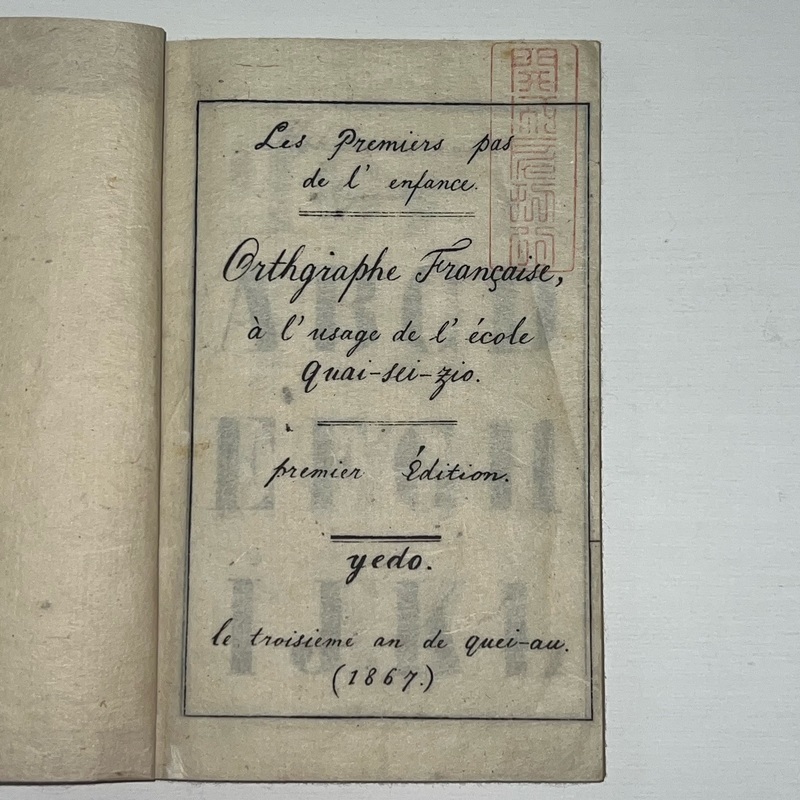 Les Premiers pas
de l' enfance.
Orthgraphe Française,
à l' usage de l' école
Quai-sei-zio.
premier Édition.
yedo.
le troisieme an de quei-au.
(1867.)